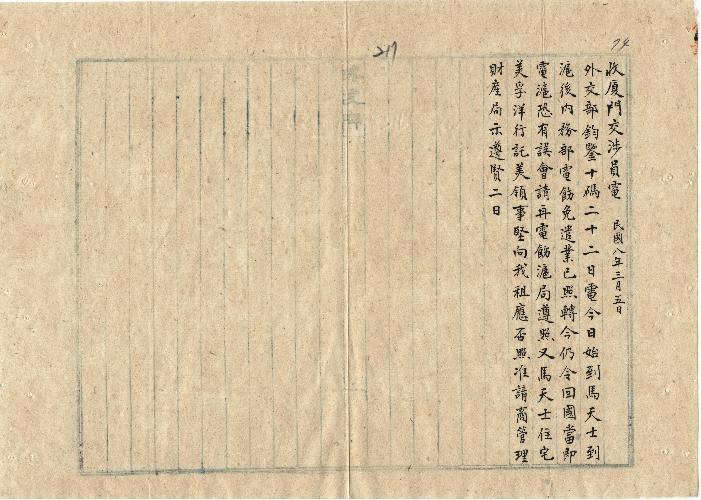 74
217
收厦門交涉員電 民國八年三月五日
外交部鈞鑒十碼二十二日電今日始到馬天士到
滬後內務部電飭免遣業已照轉今仍令回國當即
電滬恐有誤會請再電飭滬局遵照又馬天士住宅
美孚洋行託美領事堅向我租應否照准請商管理
財產局示遵賢二日